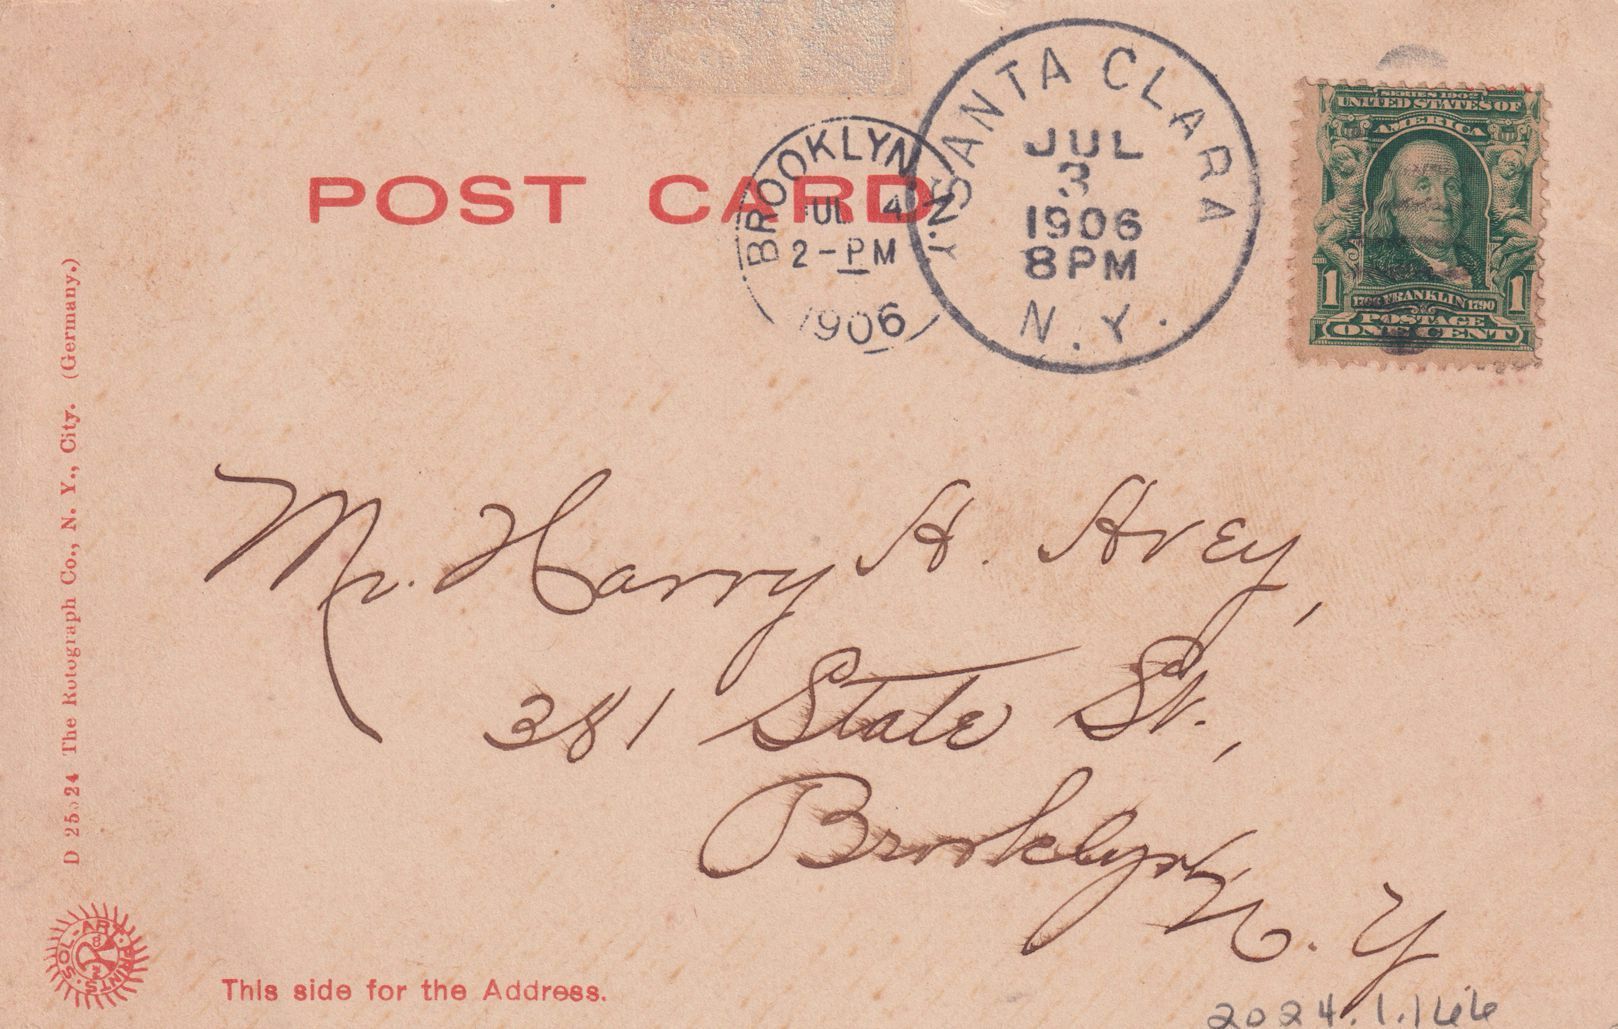 POST CARD
BROOKLYN, N.Y.
JUL 4
2-PM
1906
SANTA CLARA
JUL
3
1906
8PM
N.Y.
SERIES 1902
UNITED STATES OF
AMERICA
1706 FRANKLIN 1790
1 1
POSTAGE
ONE CENT
Mr. Harry H. Avey,
381 State St.,
Brooklyn,
N. Y.
D 25524 The Rotograph Co., N. Y., City. (Germany.)
SOL-ART PRINTS
This side for the Address.
2024.1.166